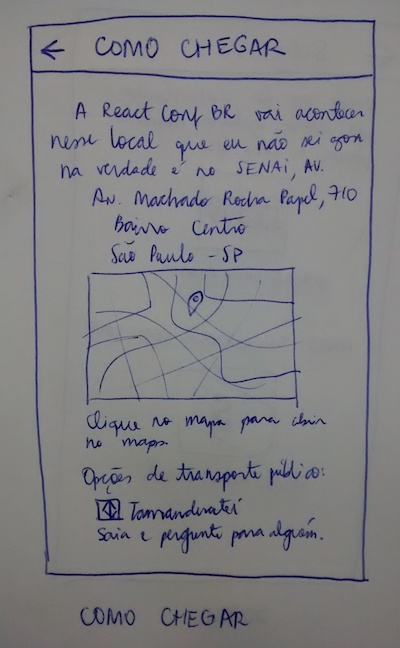 COMO CHEGAR
A React Conf BR vai acontecer
nesse local que eu não sei
na verdade é no SENAI, AV.
Av. Machado Rocha Papel, 710
Bairro Centro
São Paulo - SP
Clique no mapa para abrir
no maps.
Opções de transporte público:
Tamanduateí
Saia e pergunte para alguém.
COMO CHEGAR